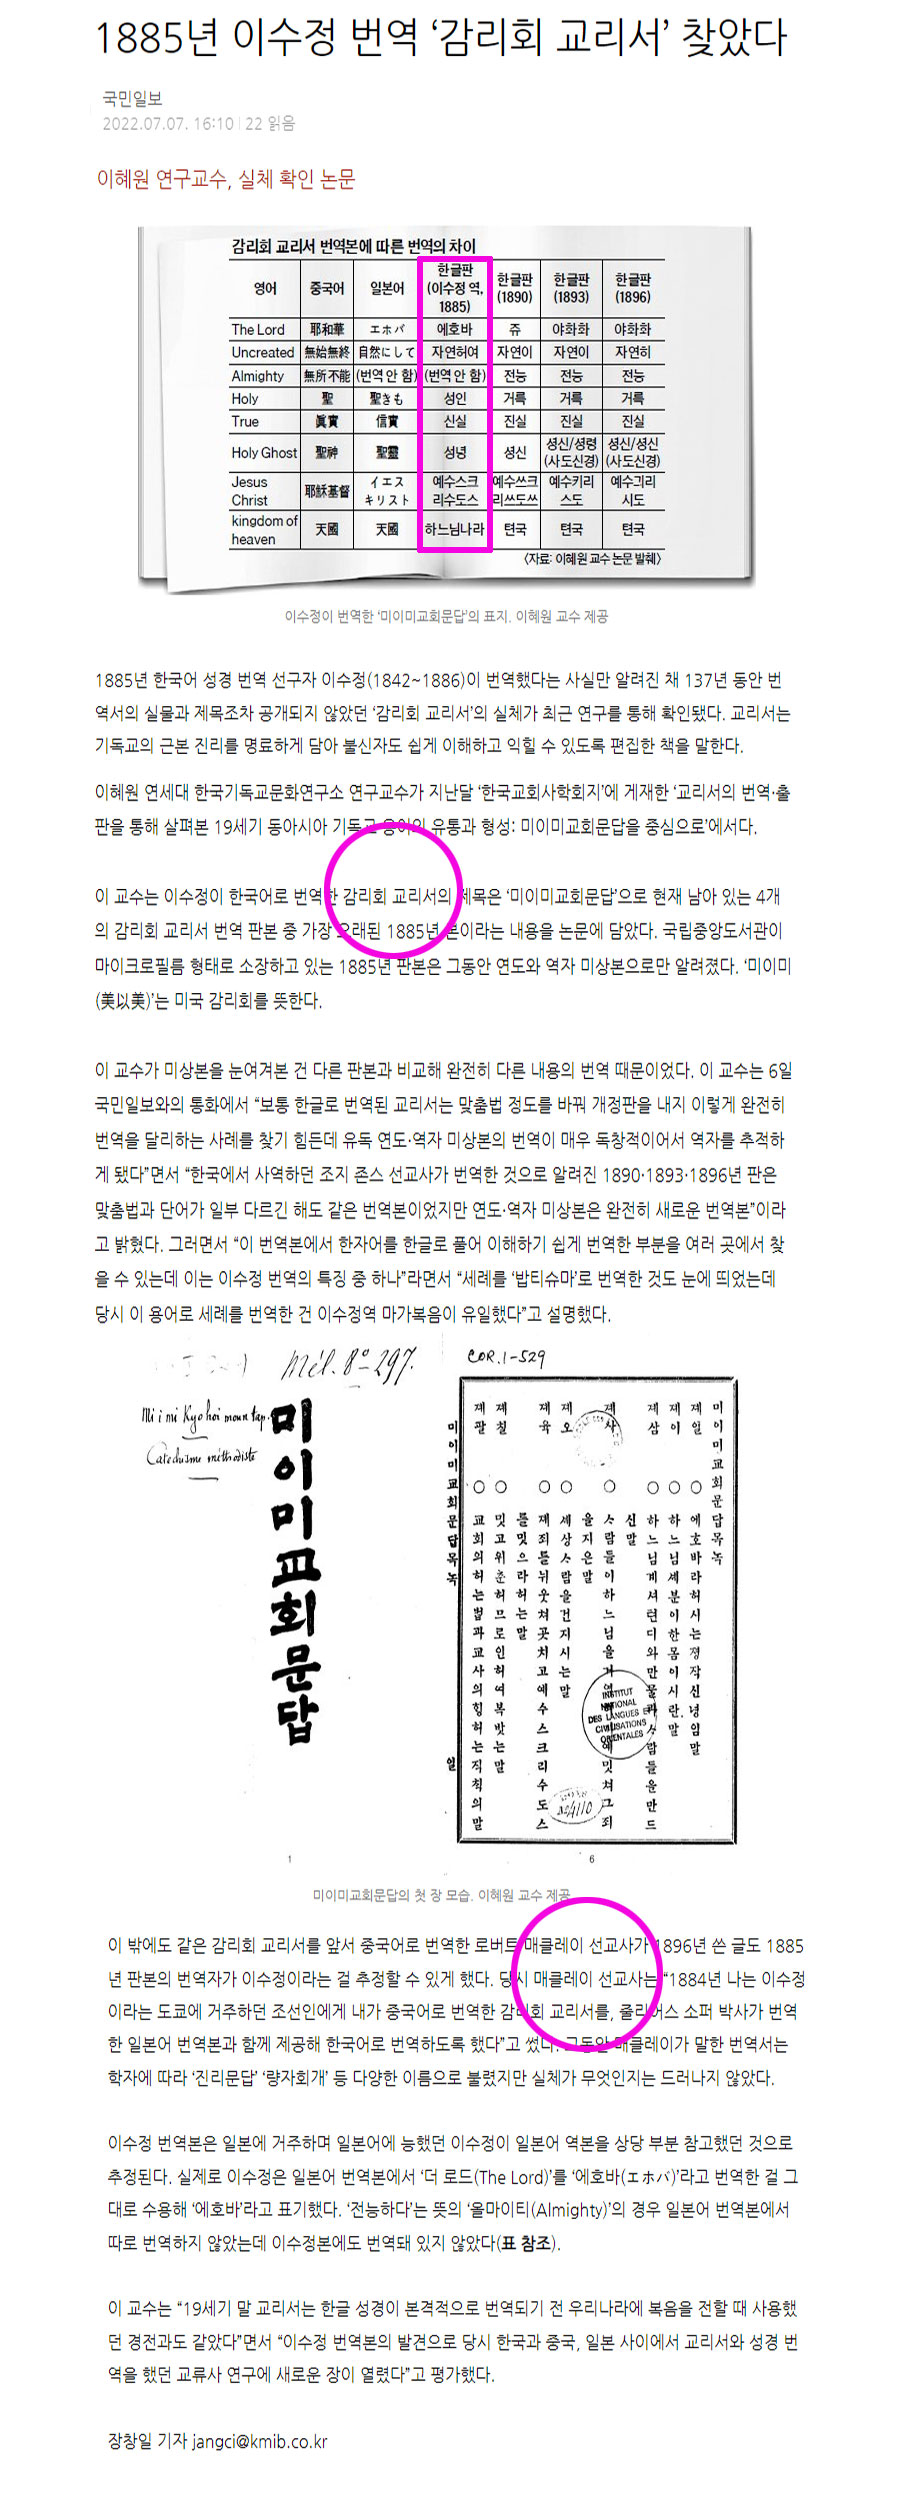 1885년 이수정 번역 ‘감리회 교리서’ 찾았다
국민일보
2022.07.07. 16:10 | 22 읽음
이혜원 연구교수, 실체 확인 논문
감리회 교리서 번역본에 따른 번역의 차이
영어 중국어 일본어 한글판 (이수정 역, 1885) 한글판 (1890) 한글판 (1893) 한글판 (1896)
The Lord 耶和華 エホバ 에호바 쥬 야화화 야화화
Uncreated 無始無終 自然にして 자연허여 자연이 자연이 자연히
Almighty 無所不能 (번역 안 함) (번역 안 함) 전능 전능 전능
Holy 聖 聖きも 성인 거륵 거륵 거륵
True 眞實 信實 신실 진실 진실 진실
Holy Ghost 聖神 聖靈 성녕 셩신 셩신/셩령 (사도신경) 셩신/셩신 (사도신경)
Jesus Christ 耶穌基督 イエス キリスト 예수스크리수도스 예수쓰크리쓰도쓰 예수키리스도 예수긔리시도
kingdom of heaven 天國 天國 하느님나라 텬국 텬국 텬국
〈자료: 이혜원 교수 논문 발췌〉
이수정이 번역한 ‘미이미교회문답’의 표지. 이혜원 교수 제공
1885년 한국어 성경 번역 선구자 이수정(1842~1886)이 번역했다는 사실만 알려진 채 137년 동안 번
역서의 실물과 제목조차 공개되지 않았던 ‘감리회 교리서’의 실체가 최근 연구를 통해 확인됐다. 교리서는
기독교의 근본 진리를 명료하게 담아 불신자도 쉽게 이해하고 익힐 수 있도록 편집한 책을 말한다.
이혜원 연세대 한국기독교문화연구소 연구교수가 지난달 ‘한국교회사학회지’에 게재한 ‘교리서의 번역·출
판을 통해 살펴본 19세기 동아시아 기독교 용어의 유통과 형성: 미이미교회문답을 중심으로’에서다.
이 교수는 이수정이 한국어로 번역한 감리회 교리서의 제목은 ‘미이미교회문답’으로 현재 남아 있는 4개
의 감리회 교리서 번역 판본 중 가장 오래된 1885년 본이라는 내용을 논문에 담았다. 국립중앙도서관이
마이크로필름 형태로 소장하고 있는 1885년 판본은 그동안 연도와 역자 미상본으로만 알려졌다. ‘미이미
(美以美)’는 미국 감리회를 뜻한다.
이 교수가 미상본을 눈여겨본 건 다른 판본과 비교해 완전히 다른 내용의 번역 때문이었다. 이 교수는 6일
국민일보와의 통화에서 “보통 한글로 번역된 교리서는 맞춤법 정도를 바꿔 개정판을 내지 이렇게 완전히
번역을 달리하는 사례를 찾기 힘든데 유독 연도·역자 미상본의 번역이 매우 독창적이어서 역자를 추적하
게 됐다”면서 “한국에서 사역하던 조지 존스 선교사가 번역한 것으로 알려진 1890·1893·1896년 판은
맞춤법과 단어가 일부 다르긴 해도 같은 번역본이었지만 연도·역자 미상본은 완전히 새로운 번역본”이라
고 밝혔다. 그러면서 “이 번역본에서 한자어를 한글로 풀어 이해하기 쉽게 번역한 부분을 여러 곳에서 찾
을 수 있는데 이는 이수정 번역의 특징 중 하나”라면서 “세례를 ‘밥티슈마’로 번역한 것도 눈에 띄었는데
당시 이 용어로 세례를 번역한 건 이수정역 마가복음이 유일했다”고 설명했다.
Mél. 8° 297.
COR.1-529
Mi i mi Kyo hoi moun tap.
Catechisme méthodiste
미이미교회문답
미이미교회문답목녹
뎨일 ○ 에호바라허시는 졍작신녕임말
뎨이 ○ 하느님세분이한몸이시란말
뎨삼 ○ 하느님게셔텬디와만물과사람들을만드
신말
뎨사 ○
을지은말
뎨오 ○ 세상사람을건지시는말
뎨육 ○ 졔죄를뉘웃쳐곳치고예수스크리수도스
를밋으라허는말
뎨칠 ○ 밋고위쥰허므로인허여복밧는말
뎨팔 ○ 교회의허는법과교사의헝허는직칙의말
미이미교회문답목녹 일
INSTITUT NATIONAL DES LANGUES ET CIVILISATIONS ORIENTALES
1
6
미이미교회문답의 첫 장 모습. 이혜원 교수 제공
이 밖에도 같은 감리회 교리서를 앞서 중국어로 번역한 로버트 매클레이 선교사가 1896년 쓴 글도 1885
년 판본의 번역자가 이수정이라는 걸 추정할 수 있게 했다. 당시 매클레이 선교사는 “1884년 나는 이수정
이라는 도쿄에 거주하던 조선인에게 내가 중국어로 번역한 감리회 교리서를, 줄리어스 소퍼 박사가 번역
한 일본어 번역본과 함께 제공해 한국어로 번역하도록 했다”고 썼다. 그동안 매클레이가 말한 번역서는
학자에 따라 ‘진리문답’ ‘량자회개’ 등 다양한 이름으로 불렸지만 실체가 무엇인지는 드러나지 않았다.
이수정 번역본은 일본에 거주하며 일본어에 능했던 이수정이 일본어 역본을 상당 부분 참고했던 것으로
추정된다. 실제로 이수정은 일본어 번역본에서 ‘더 로드(The Lord)’를 ‘에호바(エホバ)’라고 번역한 걸 그
대로 수용해 ‘에호바’라고 표기했다. ‘전능하다’는 뜻의 ‘올마이티(Almighty)’의 경우 일본어 번역본에서
따로 번역하지 않았는데 이수정본에도 번역돼 있지 않았다(표 참조).
이 교수는 “19세기 말 교리서는 한글 성경이 본격적으로 번역되기 전 우리나라에 복음을 전할 때 사용했
던 경전과도 같았다”면서 “이수정 번역본의 발견으로 당시 한국과 중국, 일본 사이에서 교리서와 성경 번
역을 했던 교류사 연구에 새로운 장이 열렸다”고 평가했다.
장창일 기자 jangci@kmib.co.kr